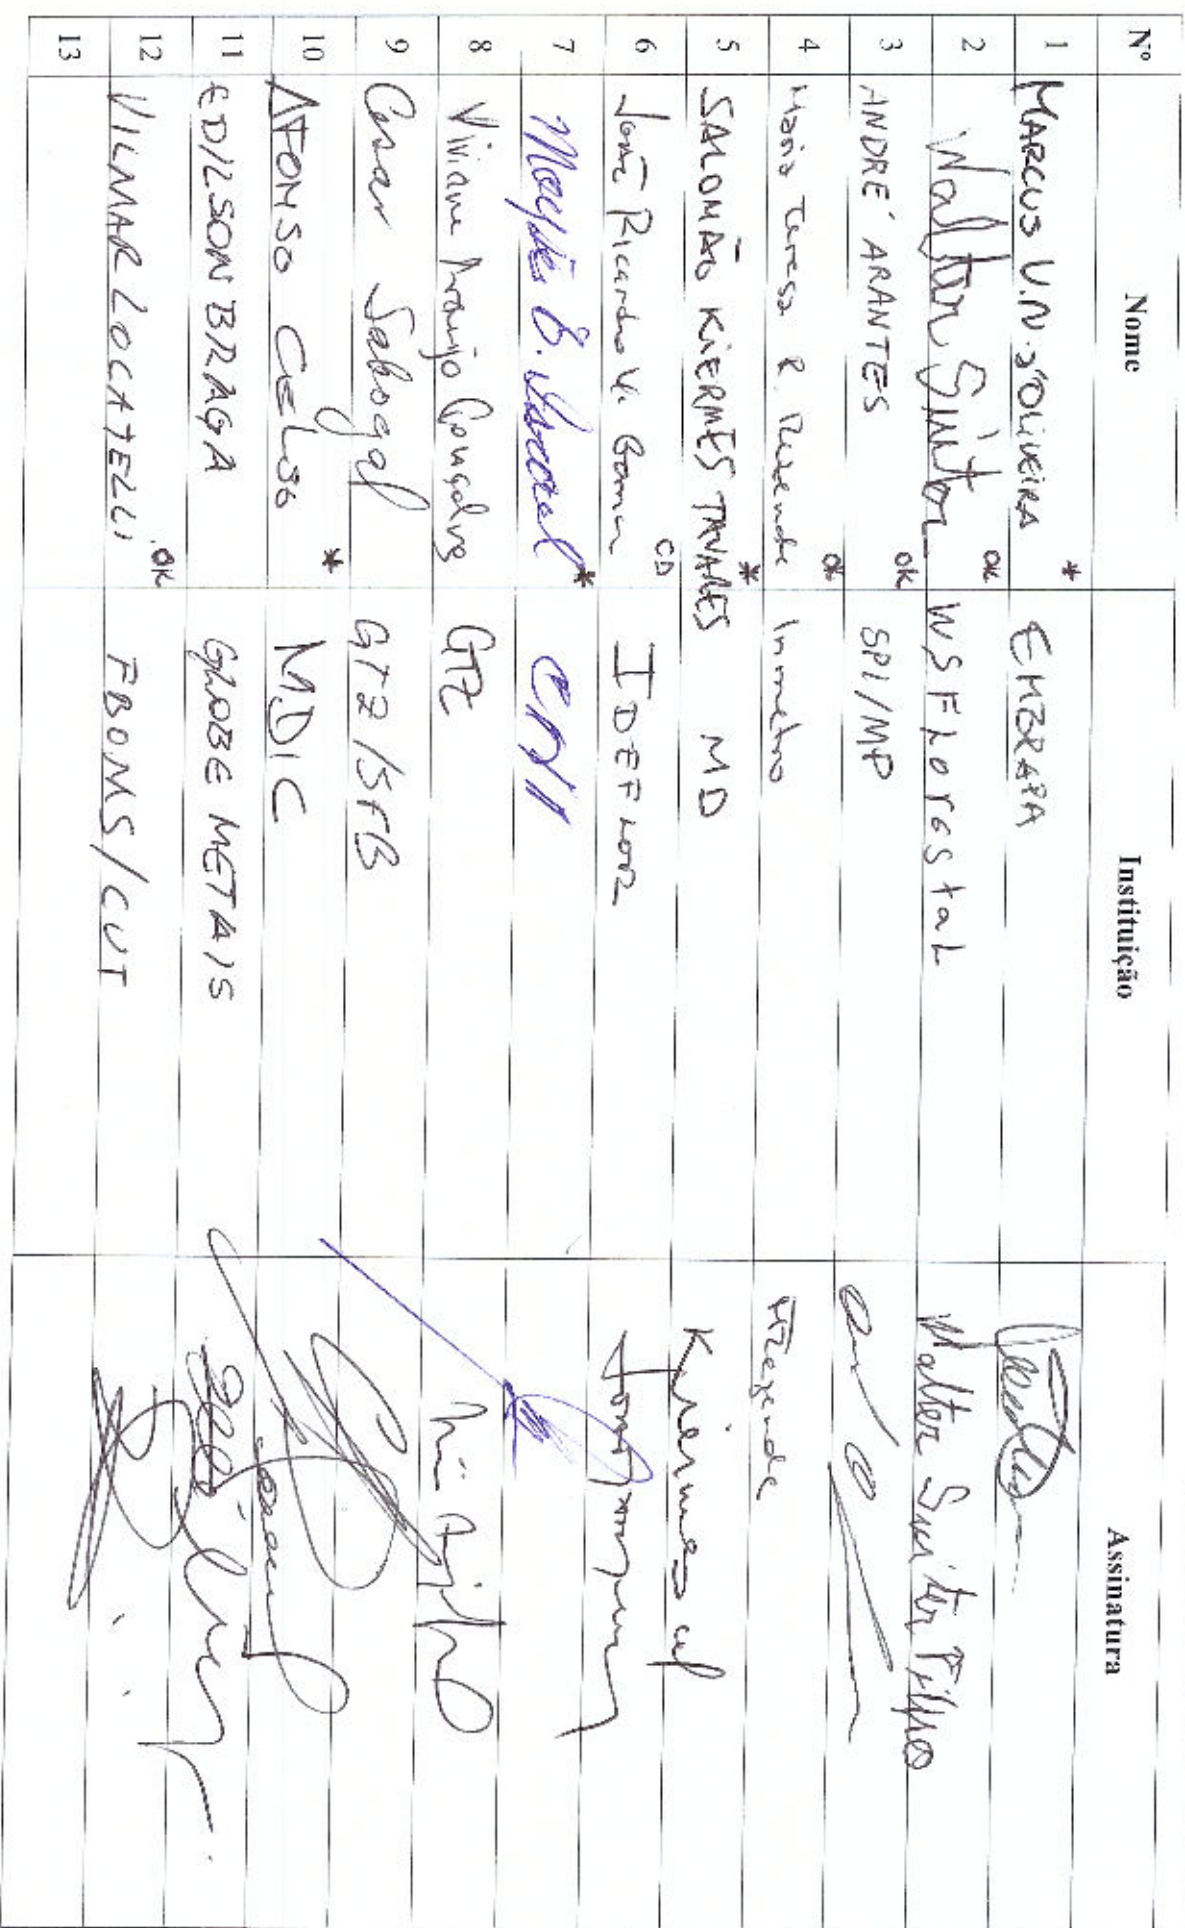 Nº Nome Instituição Assinatura
1 MARCUS V.N. d'OLIVEIRA * EMBRAPA
2 Walter Suiter OK WSFLorestaL Walter Suiter Filho
3 ANDRÉ ARANTES OK SPI/MP
4 Maria Teresa R. Rezende OK Inmetro MTRezende
5 SALOMÃO KIERMES TAVARES * MD Kiermes
6 José Ricardo CD IDEFLOR
7 * CNI
8 Viviane Araujo Gonçalves GTZ
9 Cesar Sabogal GTZ/SFB
10 AFONSO CELSO * MDIC
11 EDILSON BRAGA GLOBE METAIS
12 VILMAR LOCATELLI OK FBOMS/CUT
13